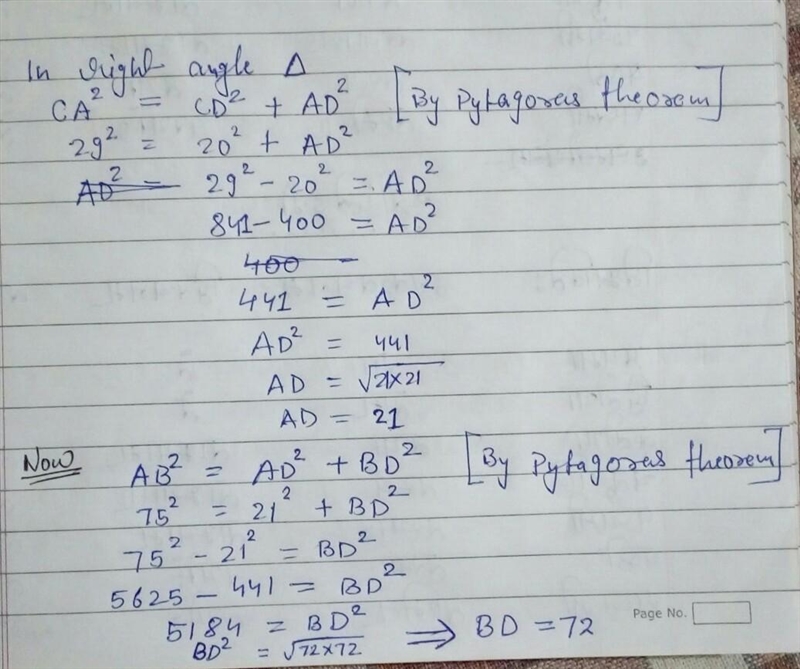 In right angle Δ
CA² = CD² + AD² [By Pytagoras theorem]
29² = 20² + AD²
AD² = 29² - 20² = AD²
841 - 400 = AD²
400 -
441 = AD²
AD² = 441
AD = √21×21
AD = 21
Now AB² = AD² + BD² [By Pytagoras theorem]
75² = 21² + BD²
75² - 21² = BD²
5625 - 441 = BD²
5184 = BD²
BD² = √72×72 ⇒ BD = 72
Page No.